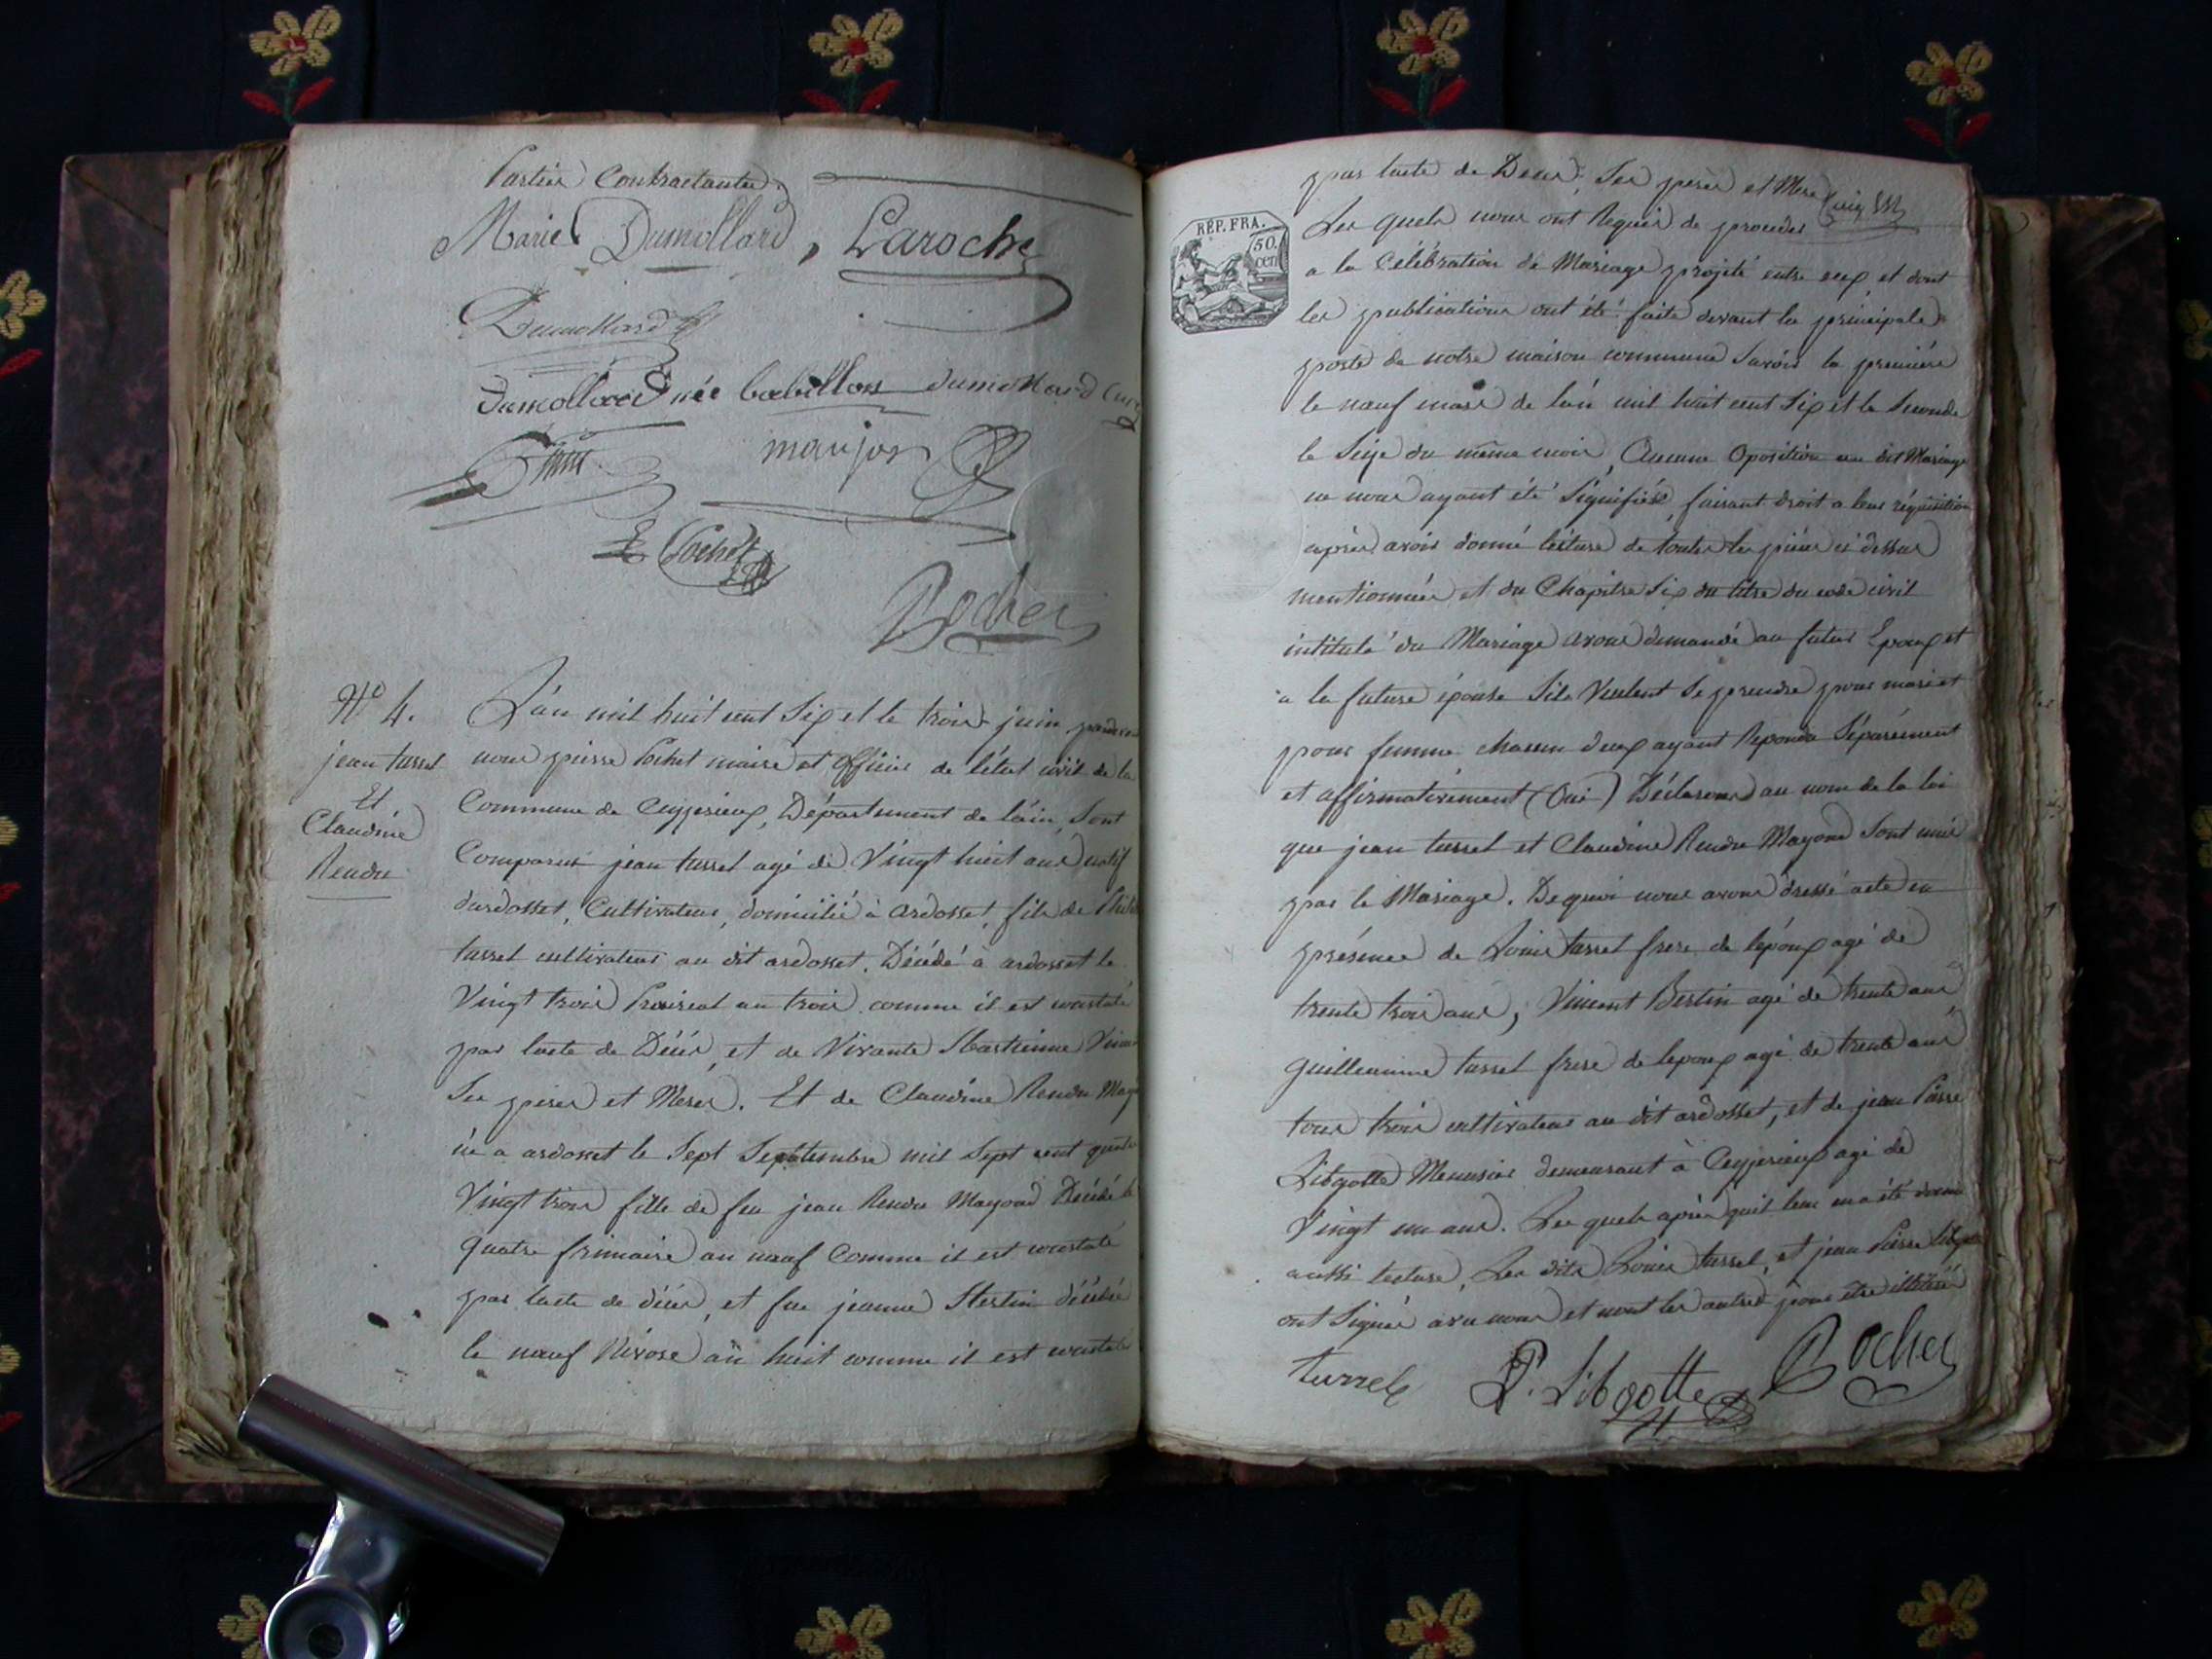 Parties Contractantes
Marie Dumollard, Laroche
Dumollard
Dumollard née babillon dumollard Curé
maujon
P Pochet
Pochet
N° 4.
jean turrel
Et
Claudine
Rendu
L'an mil huit cent Six et le trois juin pardevant
nous pierre Pochet maire et officier de l'état civil de la
Commune de Ceyzerieux, Département de l'ain, Sont
Comparus jean turrel agé de Vingt huit ans natif
dardosset, Cultivateur, domicilié à Ardosset, fils de
turrel cultivateur au dit ardosset. Décédé à ardosset le
Vingt trois Prairial an trois comme il est constaté
par lacte de Décès, et de Vivante
Ses peres et Meres. Et de Claudine Rendu
née a ardosset le Sept Septtembre mil Sept cent quatre
Vingt trois fille de feu jean Rendu Mayoud Décédé le
quatre frimaire an neuf Comme il est constaté
par lacte de décès, et feu jeanne décédée
le neuf Nivose an huit comme il est constaté
par lacte de Deces, Ses peres et Mere
REP. FRA.
50.
cen
Les quels nous ont Requis de proceder
a la Célébration de Mariage projeté entre eux et dont
les publications ont été faite devant la principale
porte de notre maison commune Savoir la première
le neuf mars de l'an mil huit cent Six et la Seconde
le Seize du même mois, Aucune Oposition au dit Mariage
ne nous ayant été Signifiée, faisant droit a leur réquisition
après avoir donné lécture de toutes les pièces ci dessus
mentionnées et du Chapitre Six du titre du code civil
intitulé du Mariage avons demandé au futur Epoux et
a la future épouse Sils Veulent Se prendre pour mari et
pour femme chacun deux ayant Repondu Séparément
et affirmativement (Oui) Déclarons au nom de la loi
que jean turrel et Claudine Rendu Mayoud Sont unis
par le Mariage. De quoi nous avons dressé acte en
présence de Louis turrel frere de lépoux agé de
trente trois ans, Vincent Bertin agé de trente ans
guillemme turrel frere de lepoux agé de trente ans
tous trois cultivateurs au dit ardosset, et de jean Pierre
Libgotte Menusier demeurant à Ceyzerieux agé de
Vingt un ans. Les quels après quil leur en a été donné
aussi lecture, Les dits Louis turrel, et jean Pierre Libgotte
ont Signés avec nous et nont les autres pour être illitérés
turrel P. Libgotte Pochet